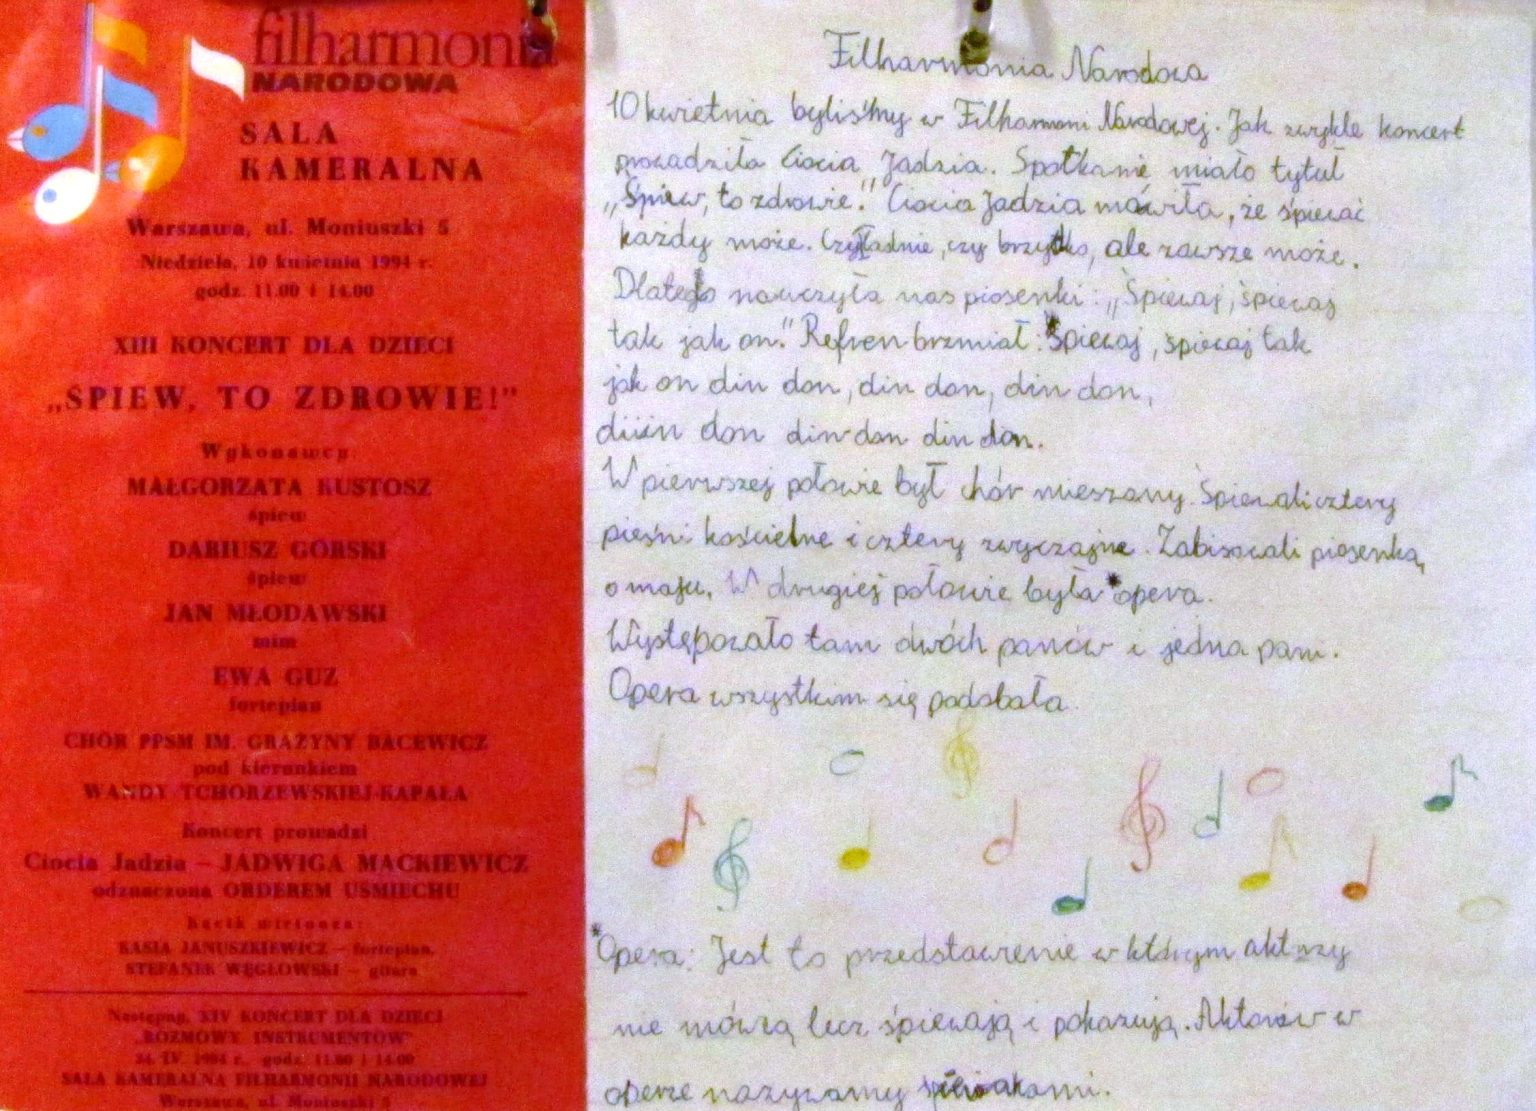 filharmonia
NARODOWA
SALA
KAMERALNA
Warszawa, ul. Moniuszki 5
Niedziela, 10 kwietnia 1994 r.
godz. 11.00 i 14.00
XIII KONCERT DLA DZIECI
„ŚPIEW, TO ZDROWIE!”
Wykonawcy:
MAŁGORZATA KUSTOSZ
śpiew
DARIUSZ GÓRSKI
śpiew
JAN MŁODAWSKI
mim
EWA GUZ
fortepian
CHÓR PPSM IM. GRAŻYNY BACEWICZ
pod kierunkiem
WANDY TCHORZEWSKIEJ-KAPAŁA
Koncert prowadzi
Ciocia Jadzia — JADWIGA MACKIEWICZ
odznaczona ORDEREM UŚMIECHU
Kącik wirtuoza:
KASIA JANUSZKIEWICZ — fortepian,
STEFANEK WĘGŁOWSKI — gitara
Następny, XIV KONCERT DLA DZIECI
„ROZMOWY INSTRUMENTÓW”
24. IV. 1994 r. godz. 11.00 i 14.00
SALA KAMERALNA FILHARMONII NARODOWEJ
Warszawa, ul. Moniuszki 5
Filharmonia Narodowa
10 kwietnia byliśmy w Filharmoni Narodowej. Jak zwykle koncert
prowadziła Ciocia Jadzia. Spotkanie miało tytuł
„Śpiew, to zdrowie.” Ciocia Jadzia mówiła, że śpiewać
każdy może. Czy ładnie, czy brzytko, ale zawsze może.
Dlatego nauczyła nas piosenki: „Śpiewaj, śpiewaj
tak jak on.” Refren brzmiał: Śpiewaj, śpiewaj tak
jak on din don, din don, din don,
diiin don din don din don.
W pierwszej połowie był chór mieszany. Śpiewali cztery
pieśni kościelne i cztery zwyczajne. Zabisowali piosenką
o maju. W drugiej połowie była *opera.
Występowało tam dwóch panów i jedna pani.
Opera wszystkim się podobała
*Opera: Jest to przedstawienie w którym aktorzy
nie mówią lecz śpiewają i pokazują. Aktorów w
operze nazywamy śpiewakami.